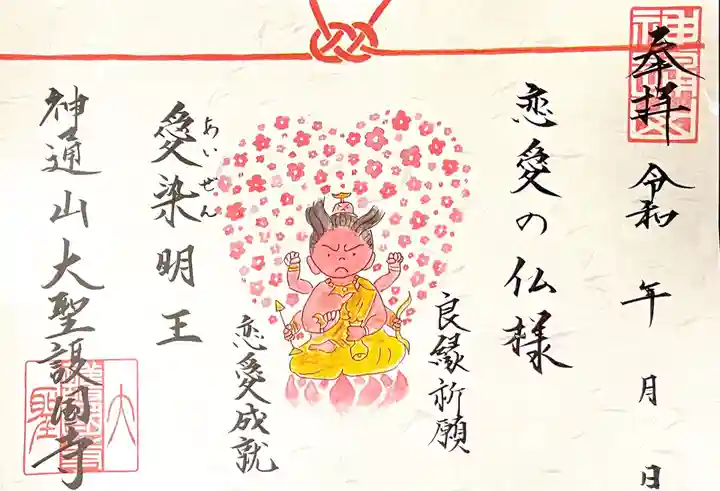 奉拝
令和 年 月 日
恋愛の仏様
良縁祈願
恋愛成就
愛染明王
あいぜん
神通山大聖護国寺